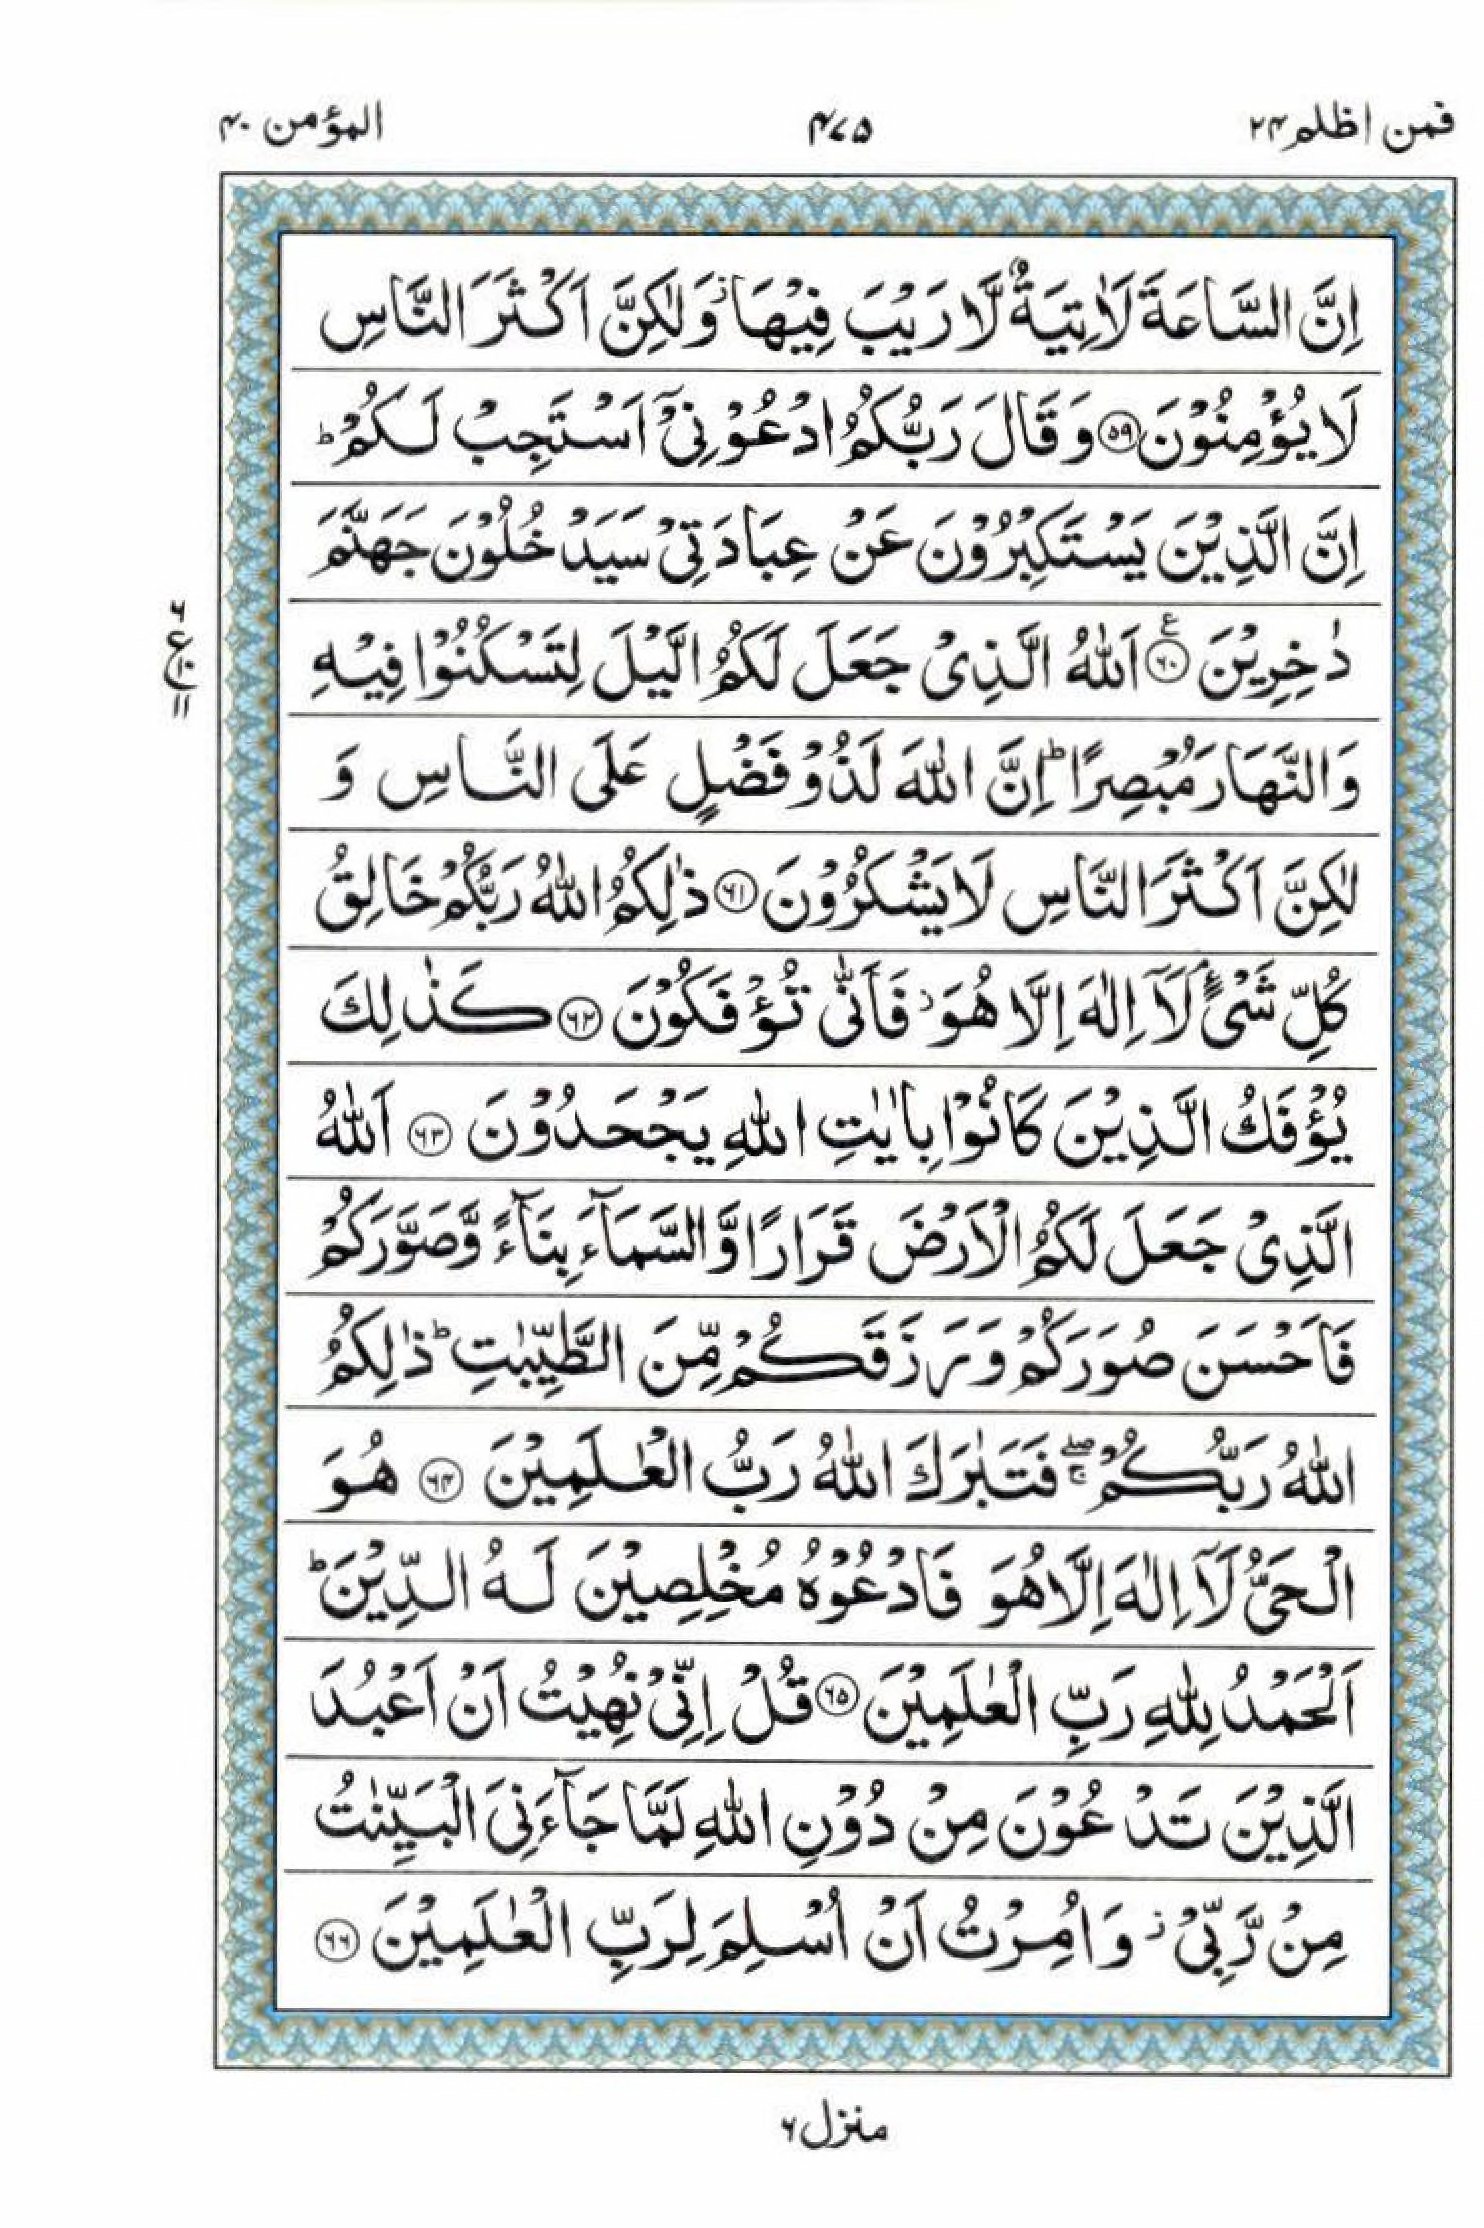 فمن اظلم ۲۴
۴۷۵
المؤمن ۴۰
اِنَّ السَّاعَةَ لَاٰتِيَةٌ لَّا رَيْبَ فِيْهَا ز وَلٰكِنَّ اَكْثَرَ النَّاسِ
لَا يُؤْمِنُوْنَ ۵۹ وَقَالَ رَبُّكُمُ ادْعُوْنِيْٓ اَسْتَجِبْ لَكُمْ ط
اِنَّ الَّذِيْنَ يَسْتَكْبِرُوْنَ عَنْ عِبَادَتِيْ سَيَدْخُلُوْنَ جَهَنَّمَ
دٰخِرِيْنَ ع ۶۰ اَللّٰهُ الَّذِيْ جَعَلَ لَكُمُ الَّيْلَ لِتَسْكُنُوْا فِيْهِ
۶ ع ۱۰ ۱۱
وَالنَّهَارَ مُبْصِرًا ط اِنَّ اللّٰهَ لَذُوْ فَضْلٍ عَلَى النَّاسِ وَ
لٰكِنَّ اَكْثَرَ النَّاسِ لَا يَشْكُرُوْنَ ۶۱ ذٰلِكُمُ اللّٰهُ رَبُّكُمْ خَالِقُ
كُلِّ شَيْءٍ ۘ لَآ اِلٰهَ اِلَّا هُوَ ز فَاَنّٰى تُؤْفَكُوْنَ ۶۲ كَذٰلِكَ
يُؤْفَكُ الَّذِيْنَ كَانُوْا بِاٰيٰتِ اللّٰهِ يَجْحَدُوْنَ ۶۳ اَللّٰهُ
الَّذِيْ جَعَلَ لَكُمُ الْاَرْضَ قَرَارًا وَّالسَّمَآءَ بِنَآءً وَّصَوَّرَكُمْ
فَاَحْسَنَ صُوَرَكُمْ وَرَزَقَكُمْ مِّنَ الطَّيِّبٰتِ ط ذٰلِكُمُ
اللّٰهُ رَبُّكُمْ ۖۚ فَتَبٰرَكَ اللّٰهُ رَبُّ الْعٰلَمِيْنَ ۶۴ هُوَ
الْحَيُّ لَآ اِلٰهَ اِلَّا هُوَ فَادْعُوْهُ مُخْلِصِيْنَ لَهُ الدِّيْنَ ط
اَلْحَمْدُ لِلّٰهِ رَبِّ الْعٰلَمِيْنَ ۶۵ قُلْ اِنِّيْ نُهِيْتُ اَنْ اَعْبُدَ
الَّذِيْنَ تَدْعُوْنَ مِنْ دُوْنِ اللّٰهِ لَمَّا جَآءَنِيَ الْبَيِّنٰتُ
مِنْ رَّبِّيْ ز وَاُمِرْتُ اَنْ اُسْلِمَ لِرَبِّ الْعٰلَمِيْنَ ۶۶
منزل ۶